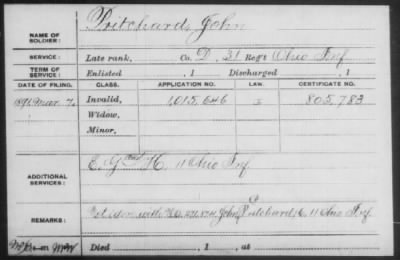 NAME OF SOLDIER: Pritchard, John
SERVICE: Late rank, Co. D, 31 Reg't Ohio Inf
TERM OF SERVICE: Enlisted , 1 Discharged , 1
DATE OF FILING. CLASS. APPLICATION NO. LAW. CERTIFICATE NO.
Mar. 7. Invalid, 1,015,646 805,783
Widow,
Minor,
ADDITIONAL SERVICES: C. G and H. 11 Ohio Inf
REMARKS: Not iden with John Pritchard, C. 11 Ohio Inf.
Died , 1 , at